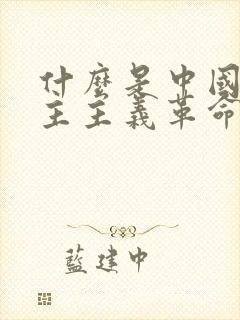 什麼是中國
主主義革命
藍建中